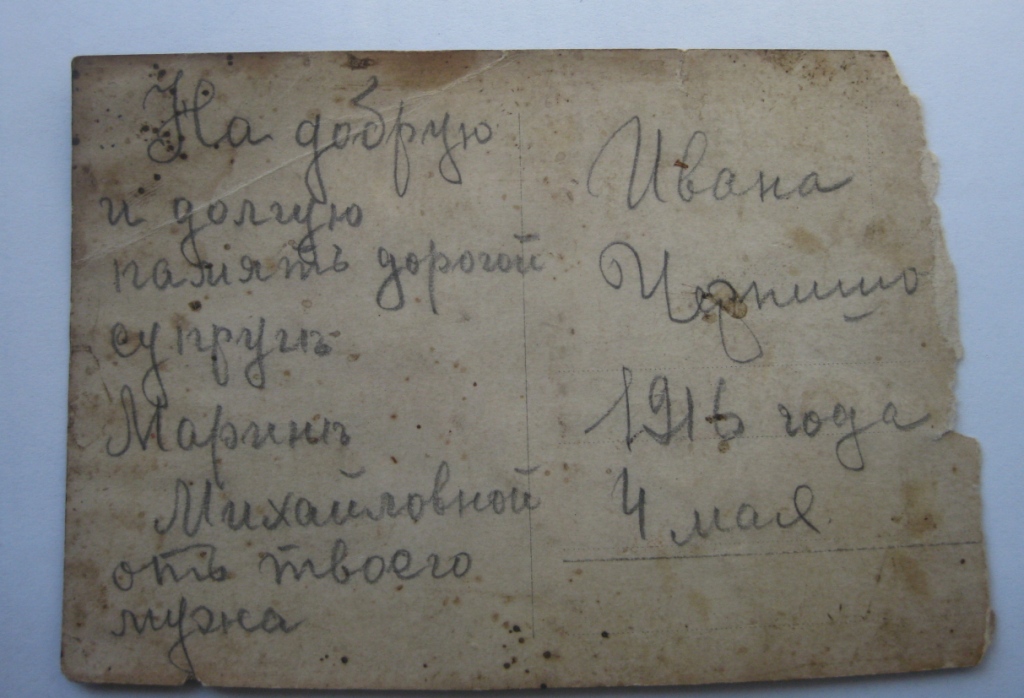 На добрую
и долгую
память дорогой
супругѣ
Маринѣ
Михайловной
отъ твоего
мужа
Ивана
1916 года
4 мая